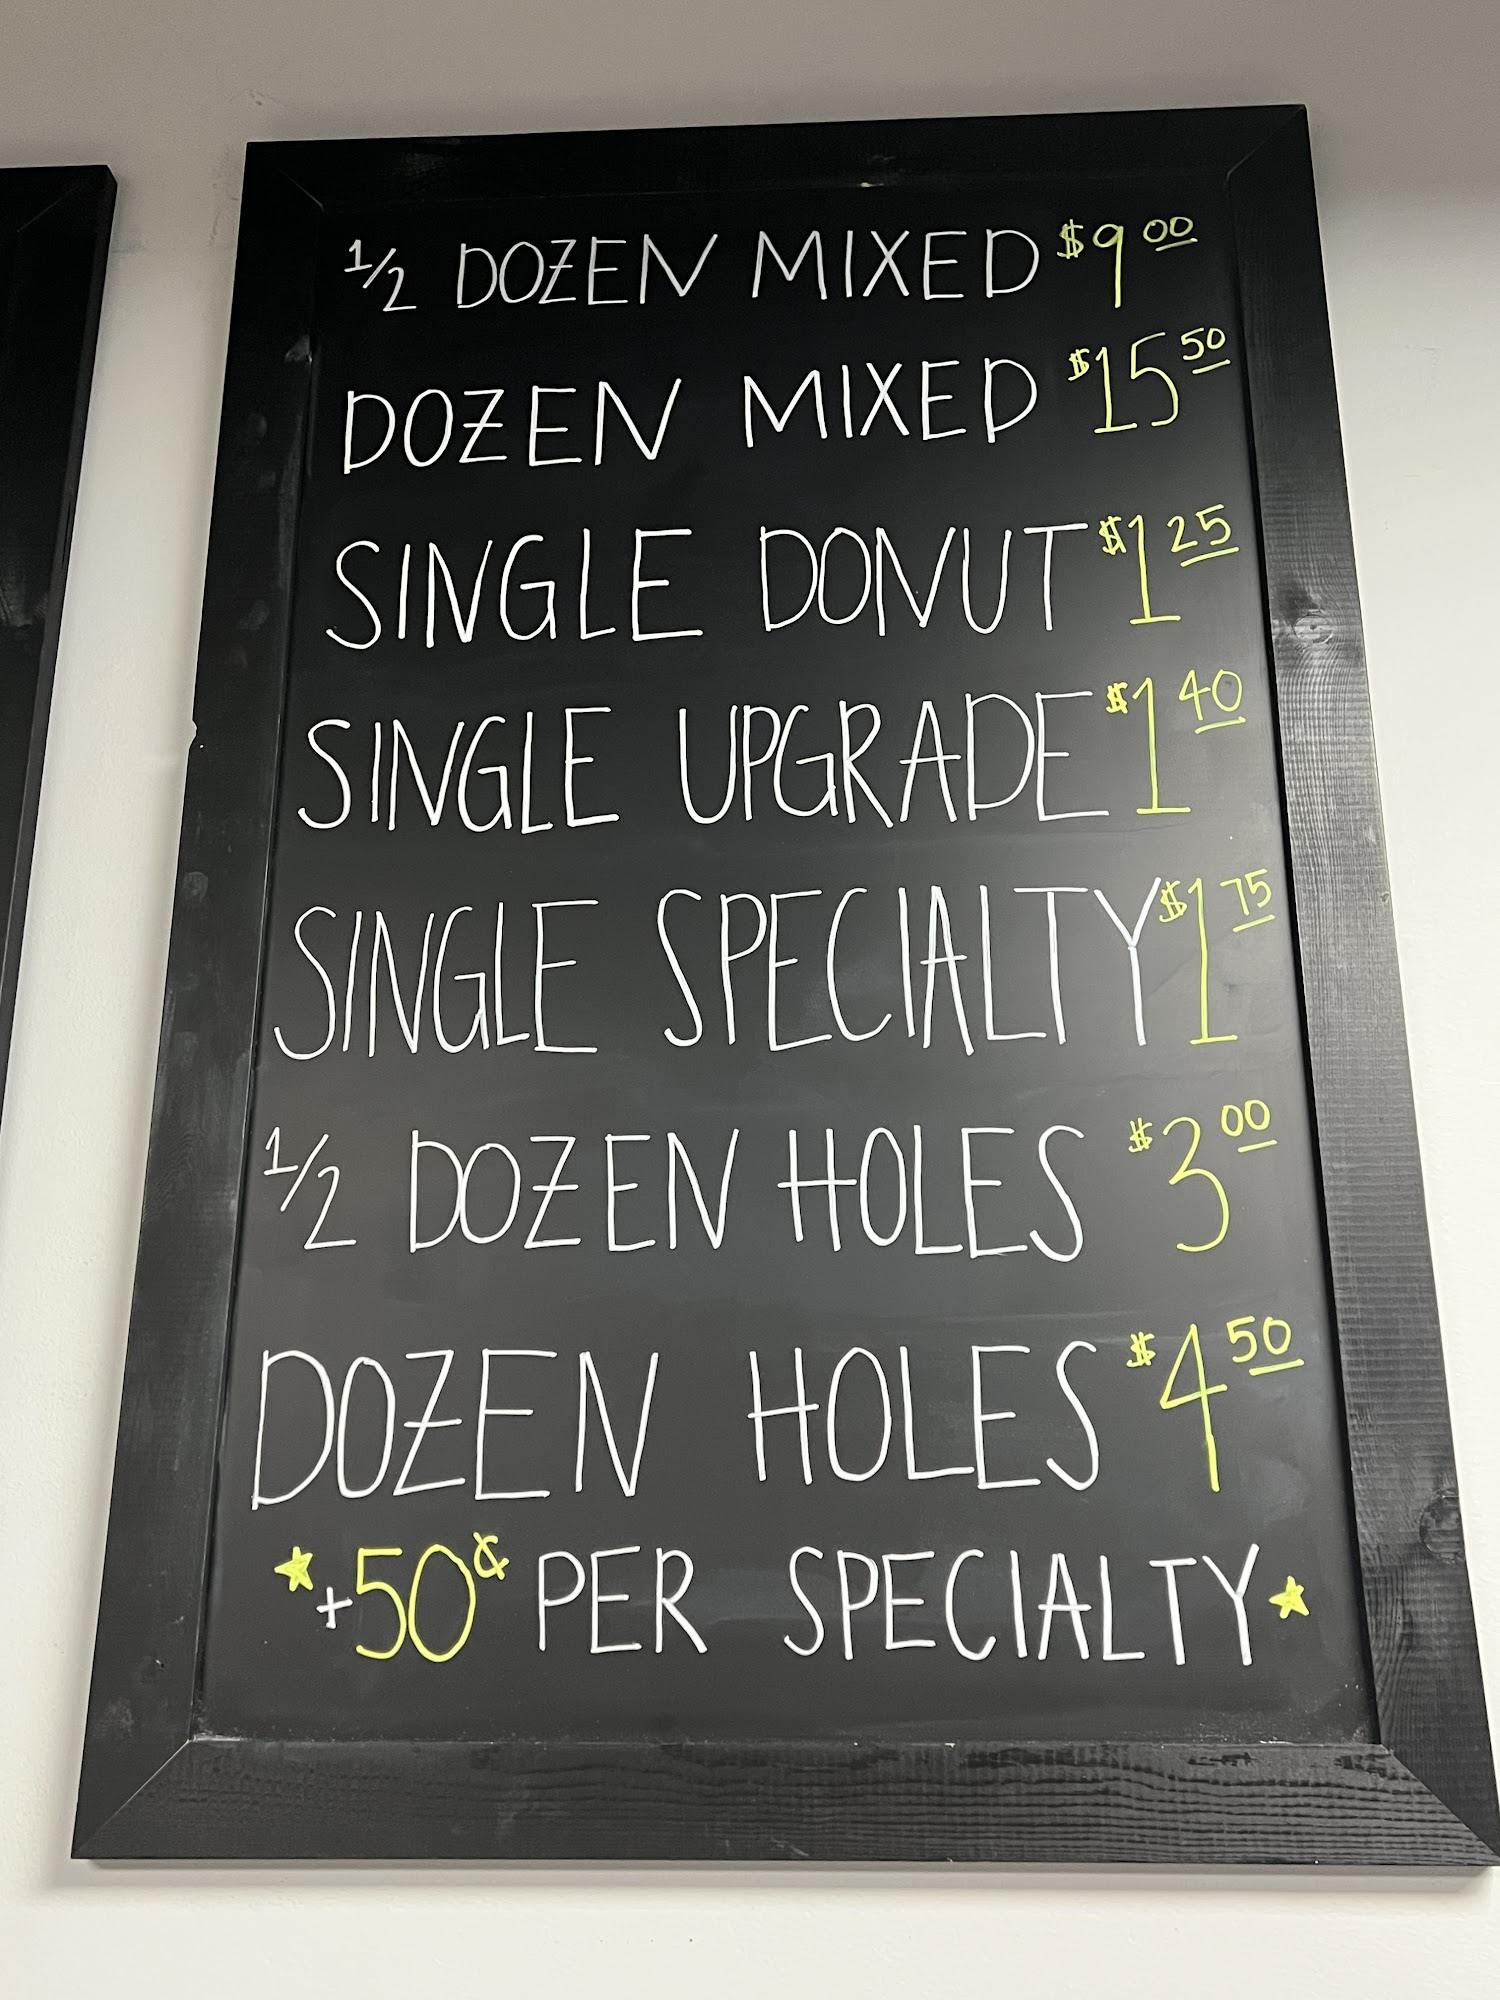 1/2 DOZEN MIXED $9 00
DOZEN MIXED $15 50
SINGLE DONUT $1 25
SINGLE UPGRADE $1 40
SINGLE SPECIALTY $1 75
1/2 DOZEN HOLES $3 00
DOZEN HOLES $4 50
★ +50¢ PER SPECIALTY ★